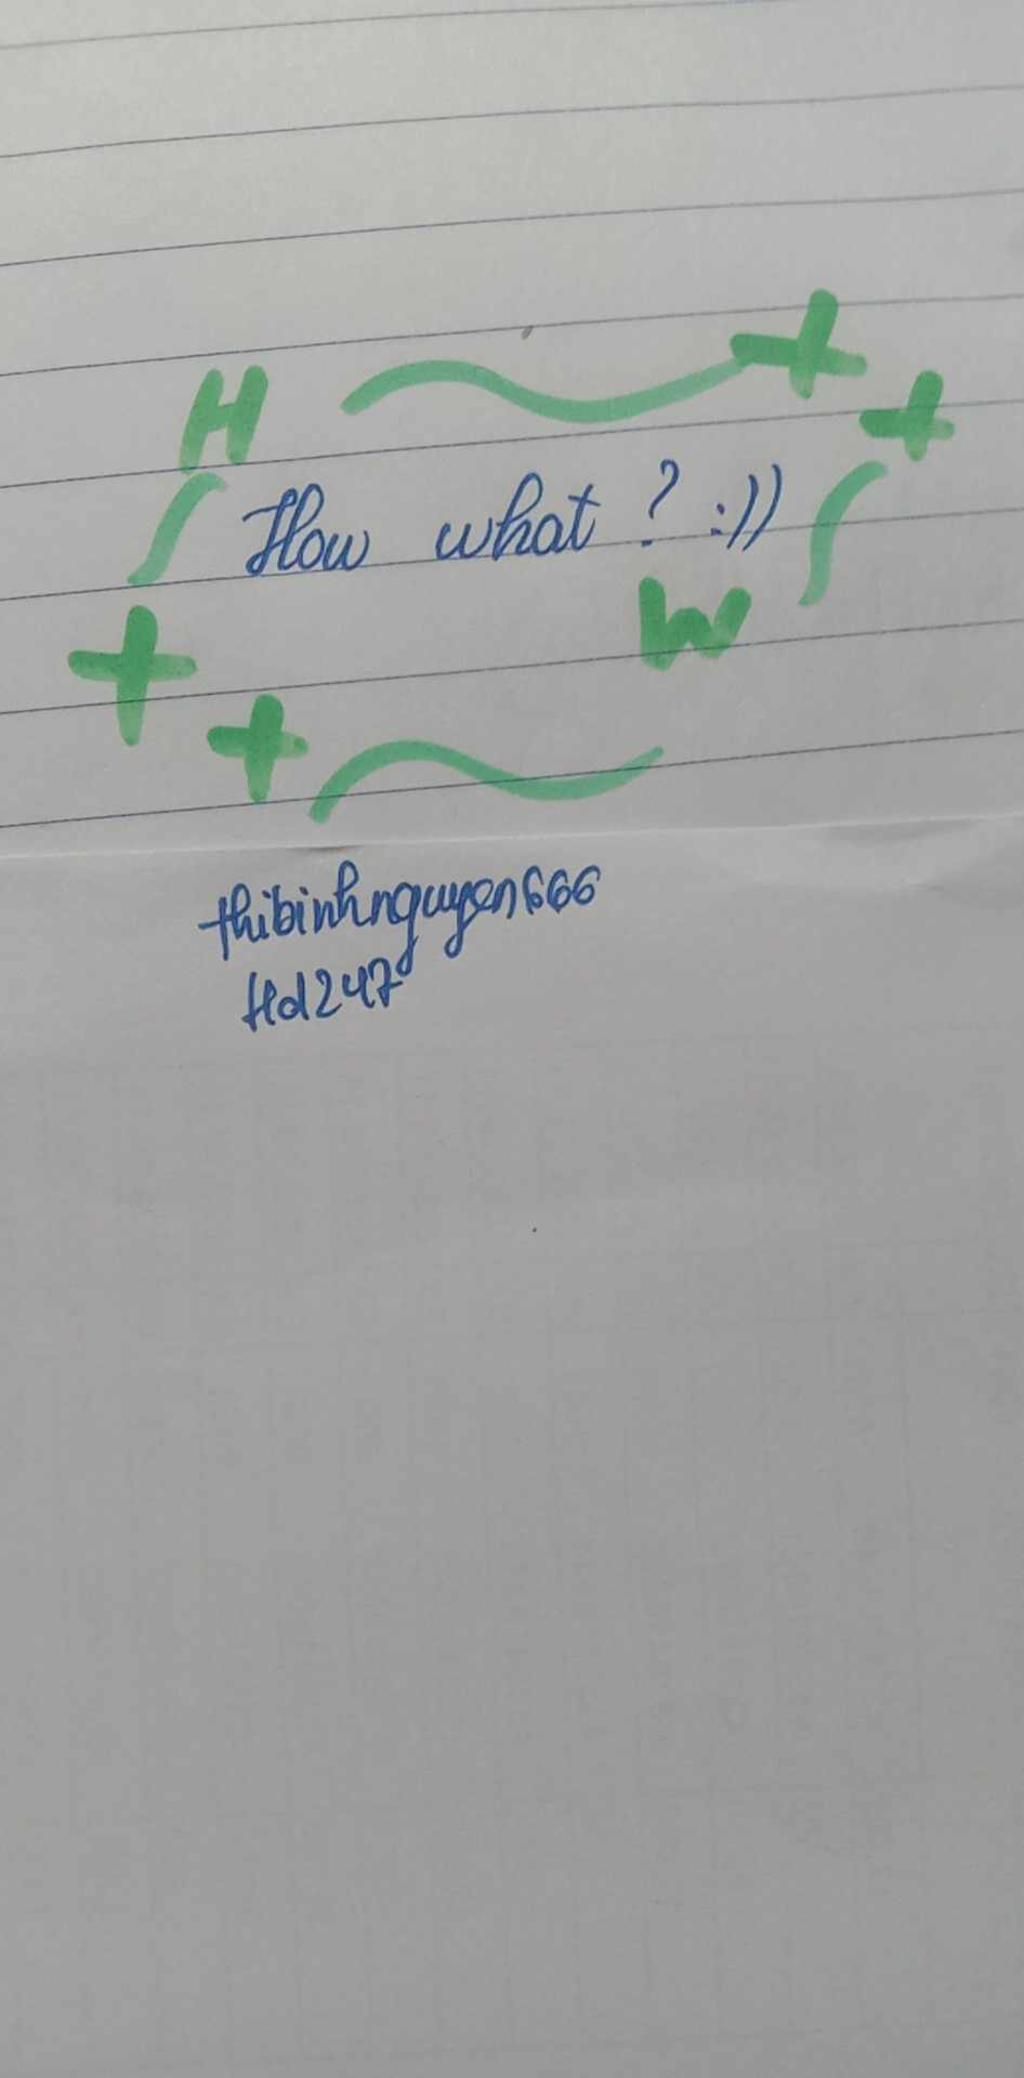 H
How what ? :))
W
thibinhnguyen666
Hd247